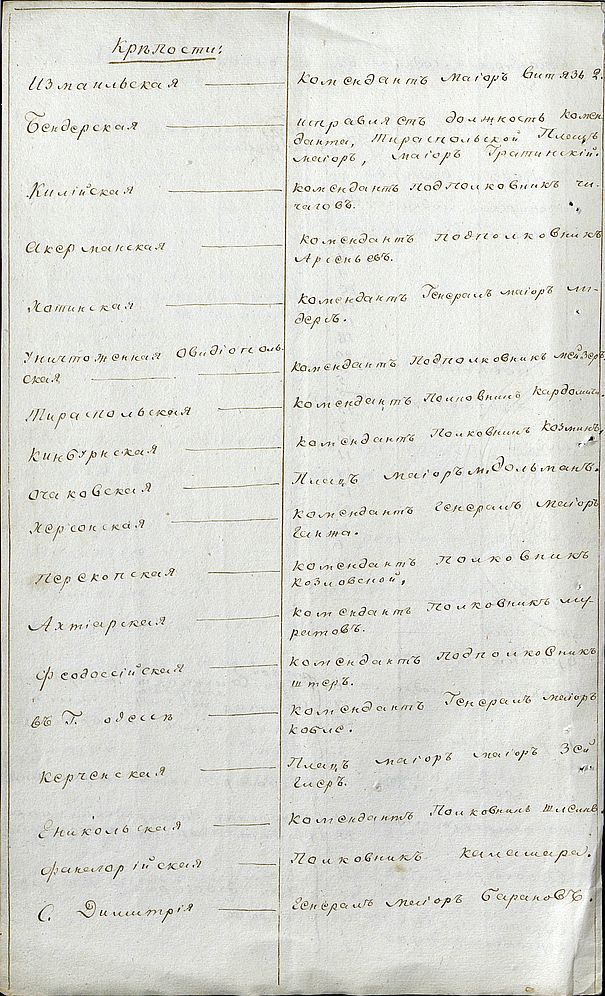 Крѣпости:
Измаильская Комендантъ маіоръ Витязь 2.
Бендерская исправляетъ должность комен
данта, Тираспольской Плацъ
маіоръ, маіоръ Гратинскій.
Килійская Комендантъ Подполковникъ Чи-
чаговъ.
Акерманская Комендантъ Подполковникъ
Арсеньевъ.
Хотинская Комендантъ Генералъ маіоръ Ли-
дерсъ.
Уничтоженная Овидіополь-
ская Комендантъ Подполковникъ Мейзеръ
Тираспольская Комендантъ Полковникъ
Кинбурнская Комендантъ Полковникъ Козминъ,
Очаковская Плацъ маіоръ Мидольманъ.
Херсонская Комендантъ Генералъ маіоръ
Ганта.
Перекопская Комендантъ Полковникъ
Козловской,
Ахтіарская Комендантъ Полковникъ Му-
ратовъ.
Феодоссійская Комендантъ Подполковникъ
Штеръ.
въ Г. Одессѣ Комендантъ Генералъ маіоръ
Кобле.
Керченская Плацъ маіоръ маіоръ Зей
Еникольская Комендантъ Полковникъ
Фанагорійская Полковникъ Каламара.
С. Димитрія Генералъ маіоръ Барановъ.